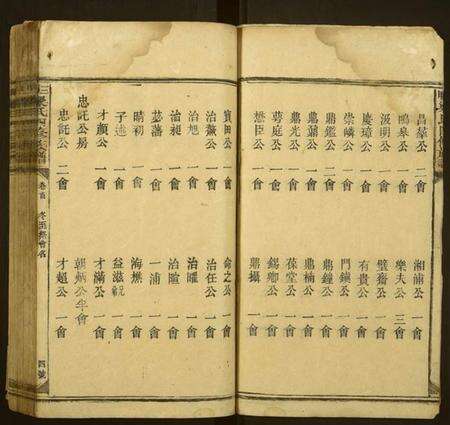 昌蕐公 二會 湘浦公 一會
鳴皋公 一會 樂夫公 三會
汲明公 一會 璧齋公 一會
慶璋公 一會 有貴公 一會
崇嶙公 一會 門鎮公 一會
鼎鑑公 二會 鼎鐘公 一會
鼎鼐公 一會 鼎楠公 一會
鼎光公 一會 葆堂公 一會
萼庭公 一會 錫卿公 一會
懋臣公 一會 鼎攝 一會
寶田公 一會 命之公 一會
治薇公 一會 治任公 一會
治旭 一會 治曜 一會
治昶 一會 治暄 一會
蕊藩 一會 一浦 一會
晴初 一會 海樵 一會
子進 一會 益滋祝 一會
才顏公 一會 才滿公 一會
忠託公房 朝炳公半會
忠託公 二會 才超公 一會
卷首 冬至祭會名 四號